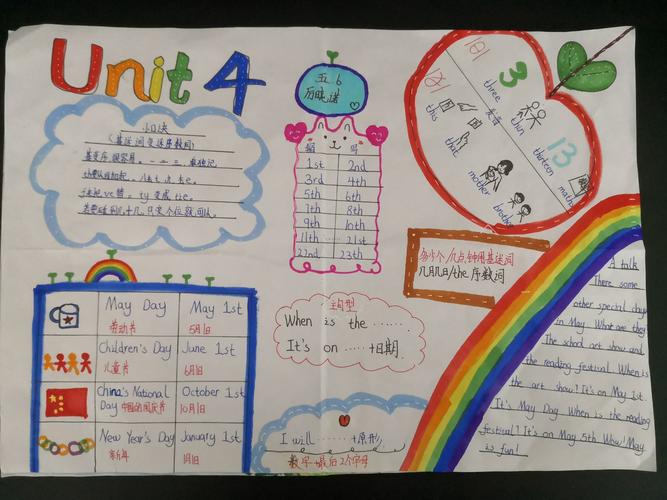 Unit 4
小口决
(基数词变序数词)
基变序,很容易,一二三,单独记,
th要从四加起,八去t,九去e,
ve把f替,ty变成tie,
若要碰到几十几,只变个位就可以。
五 6
历峻诺
1st 2nd
3rd 4th
5th 6th
7th 8th
9th 10th
11th 21st
22nd 23th
3
three
发音
thin
13
thirteen
maths
this
that
mother
brother
多少个/几点钟用基数词
几月几日/the 序数词
主句型
When is the ......
It's on ..... +日期
I will ...... +原形,
数字+最后2个字母
May Day May 1st
劳动节 5月1日
Children's Day June 1st
儿童节 6月1日
China's National October 1st
Day 中国的国庆节 10月1日
New Year's Day January 1st
新年 1月1日
A talk
There some
other special days
in May. What are they
The school art show and
the reading festival. When is
the art show? It's on May 1st.
It's May Day. When is the reading
festival? It's on May 5th Wow! May
is fun!